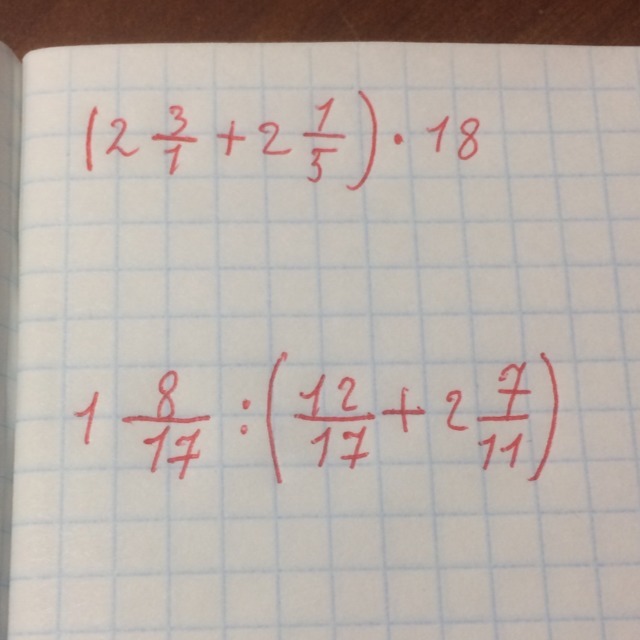 (2 3/1 + 2 1/5) · 18
1 8/17 : (12/17 + 2 7/11)